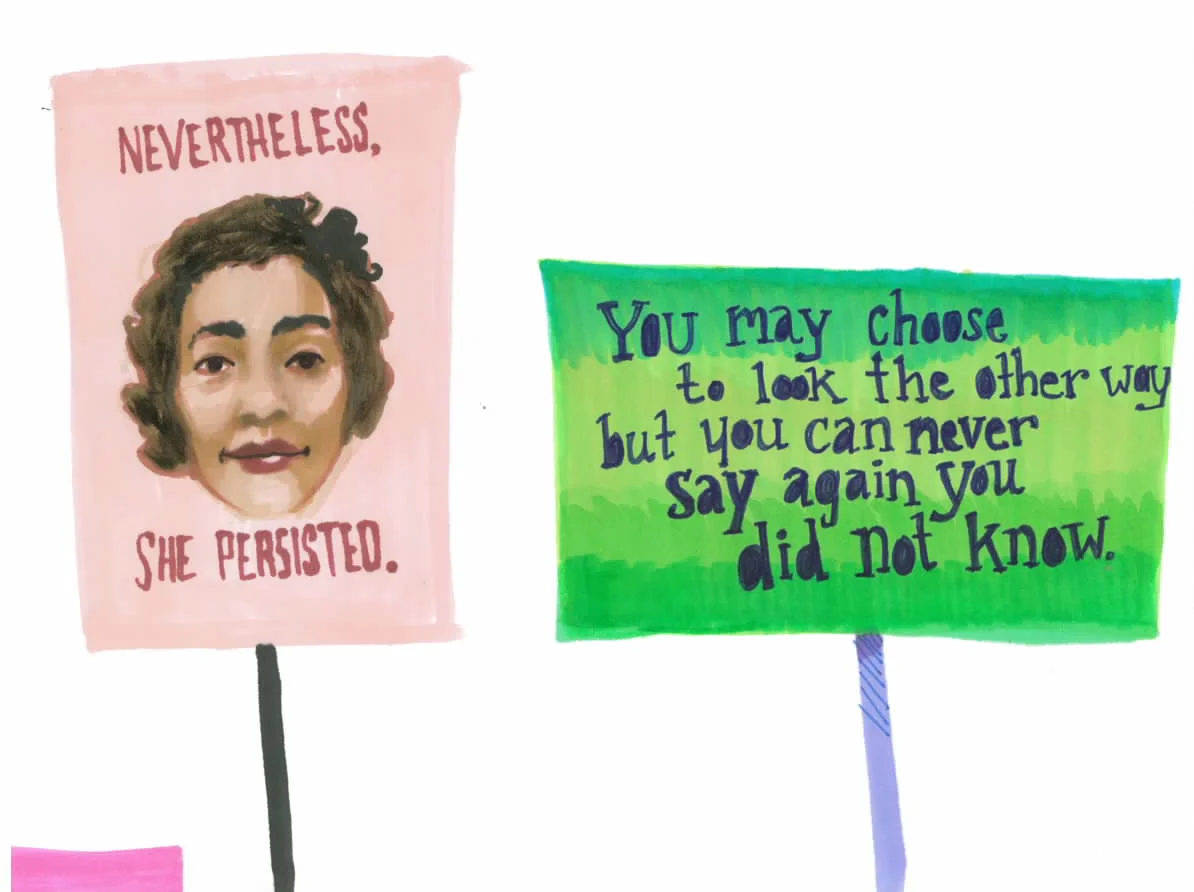 NEVERTHELESS,
SHE PERSISTED.
You may choose
to look the other way
but you can never
say again you
did not know.